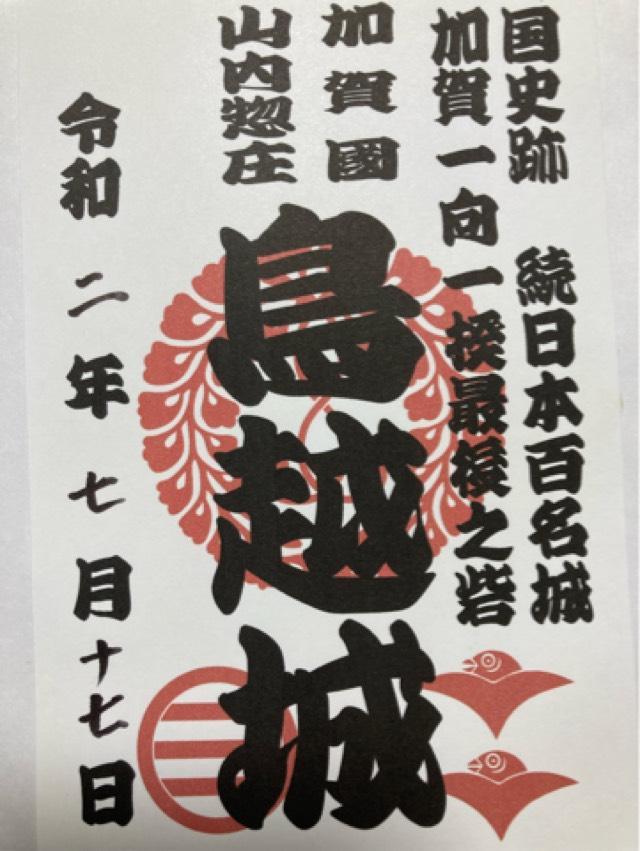 国史跡 続日本百名城
加賀一向一揆最後之砦
加賀國
山内惣庄
鳥越城
令和二年七月十七日